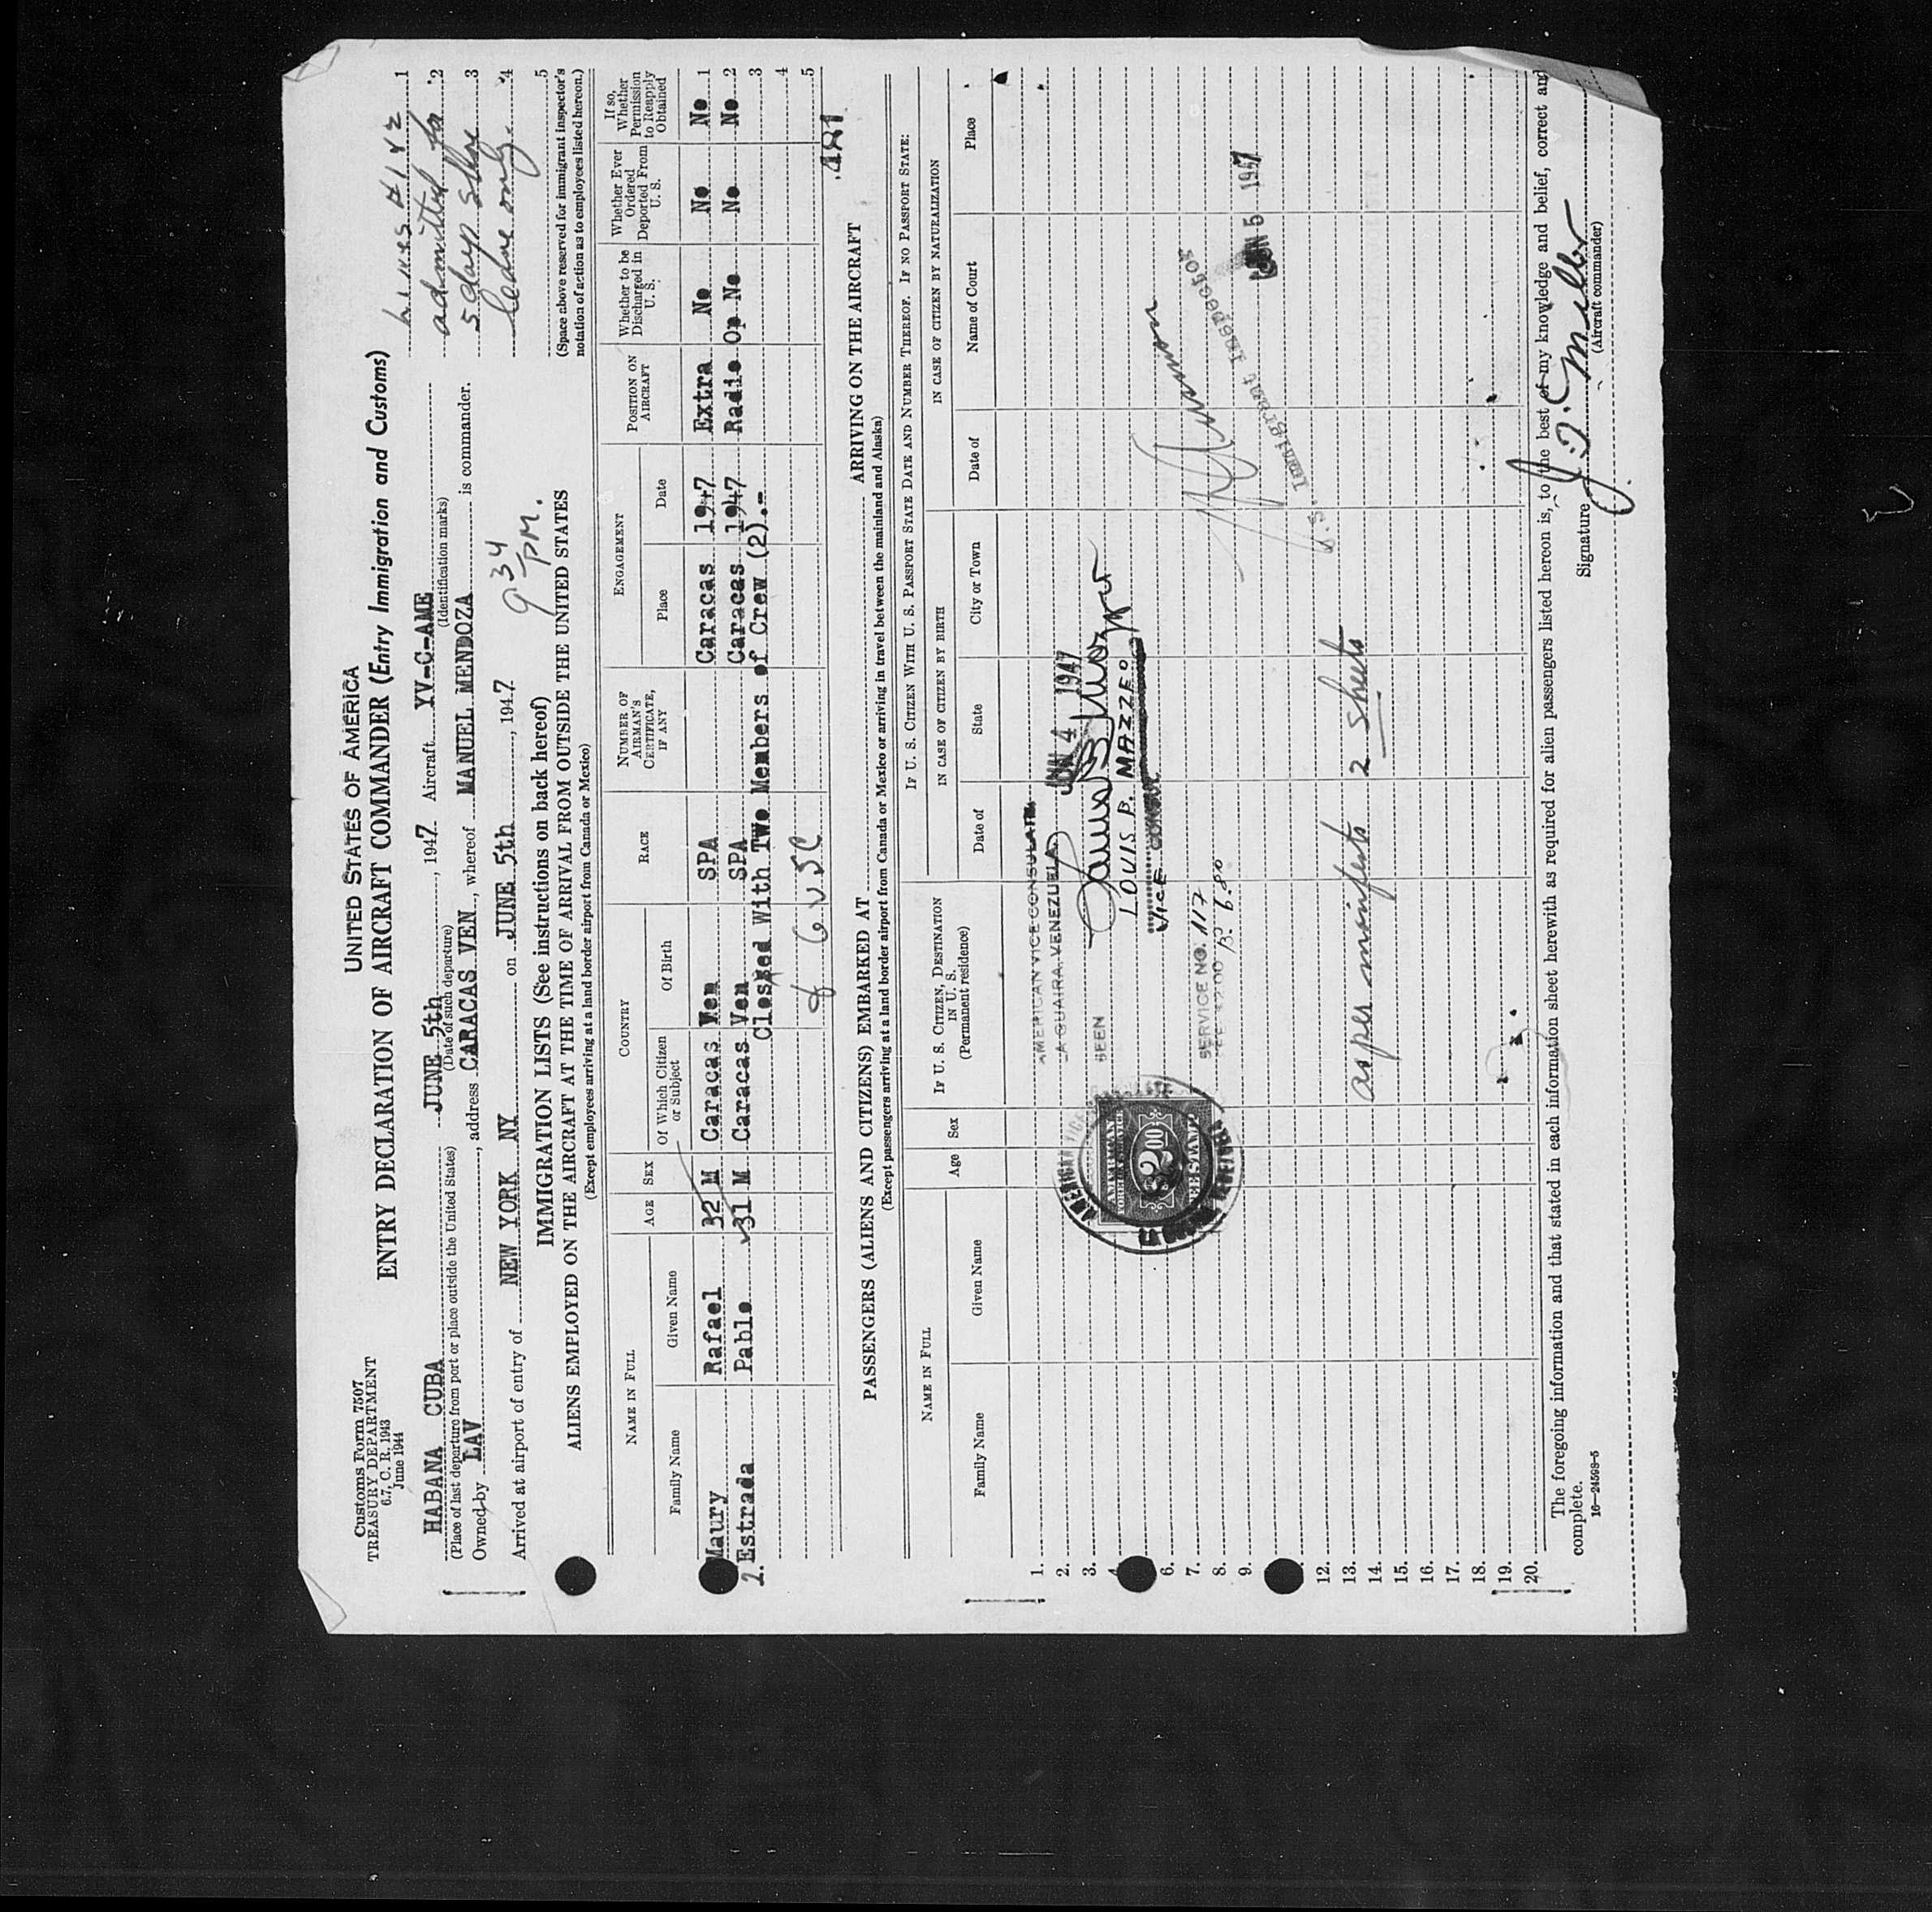 Customs Form 7507
TREASURY DEPARTMENT
6.7, C. R. 1943
June 1944
UNITED STATES OF AMERICA
ENTRY DECLARATION OF AIRCRAFT COMMANDER (Entry Immigration and Customs)
HABANA CUBA JUNE 5th, 1947 Aircraft YV-C-AME
(Place of last departure from port or place outside the United States) (Date of such departure) (Identification marks)
Owned by LAV, address CARACAS VEN, whereof MANUEL MENDOZA is commander.
Arrived at airport of entry of NEW YORK NY on JUNE 5th, 1947
9 34 PM.
1
admitted for 2
5 days shore 3
leave only. 4
5
(Space above reserved for immigrant inspector's
notation of action as to employees listed hereon.)
IMMIGRATION LISTS (See instructions on back hereof)
ALIENS EMPLOYED ON THE AIRCRAFT AT THE TIME OF ARRIVAL FROM OUTSIDE THE UNITED STATES
(Except employees arriving at a land border airport from Canada or Mexico)
NAME IN FULL
Family Name Given Name
AGE
SEX
COUNTRY
Of Which Citizen or Subject
Of Birth
RACE
NUMBER OF AIRMAN'S CERTIFICATE, IF ANY
ENGAGEMENT
Place Date
POSITION ON AIRCRAFT
Whether to be Discharged in U. S.
Whether Ever Ordered Deported From U. S.
If so, Whether Permission to Reapply Obtained
Maury Rafael 32 M Caracas Ven SPA Caracas 1947 Extra No No No 1
2. Estrada Pablo 31 M Caracas Ven SPA Caracas 1947 Radio Op No No No 2
Closed With Two Members of Crew (2).- 3
4
5
PASSENGERS (ALIENS AND CITIZENS) EMBARKED AT ARRIVING ON THE AIRCRAFT
(Except passengers arriving at a land border airport from Canada or Mexico or arriving in travel between the mainland and Alaska)
NAME IN FULL
Family Name Given Name
Age Sex
IF U. S. CITIZEN, DESTINATION IN U. S.
(Permanent residence)
IF U. S. CITIZEN WITH U. S. PASSPORT STATE DATE AND NUMBER THEREOF. IF NO PASSPORT STATE:
IN CASE OF CITIZEN BY BIRTH
Date of State City or Town
IN CASE OF CITIZEN BY NATURALIZATION
Date of Name of Court Place
1.
2.
3.
6.
7.
8.
9.
12.
13.
14.
15.
16.
17.
18.
19.
20.
AMERICAN VICE CONSULATE
LA GUAIRA, VENEZUELA JUN 4 1947
SEEN
LOUIS B. MAZZEO
VICE CONSUL
SERVICE NO. 117
$2.00
U.S. Immigrant Inspector
JUN 5 1947
as per manifests 2 sheets
The foregoing information and that stated in each information sheet herewith as required for alien passengers listed hereon is, to the best of my knowledge and belief, correct and
complete.
16—24598-5
Signature
(Aircraft commander)